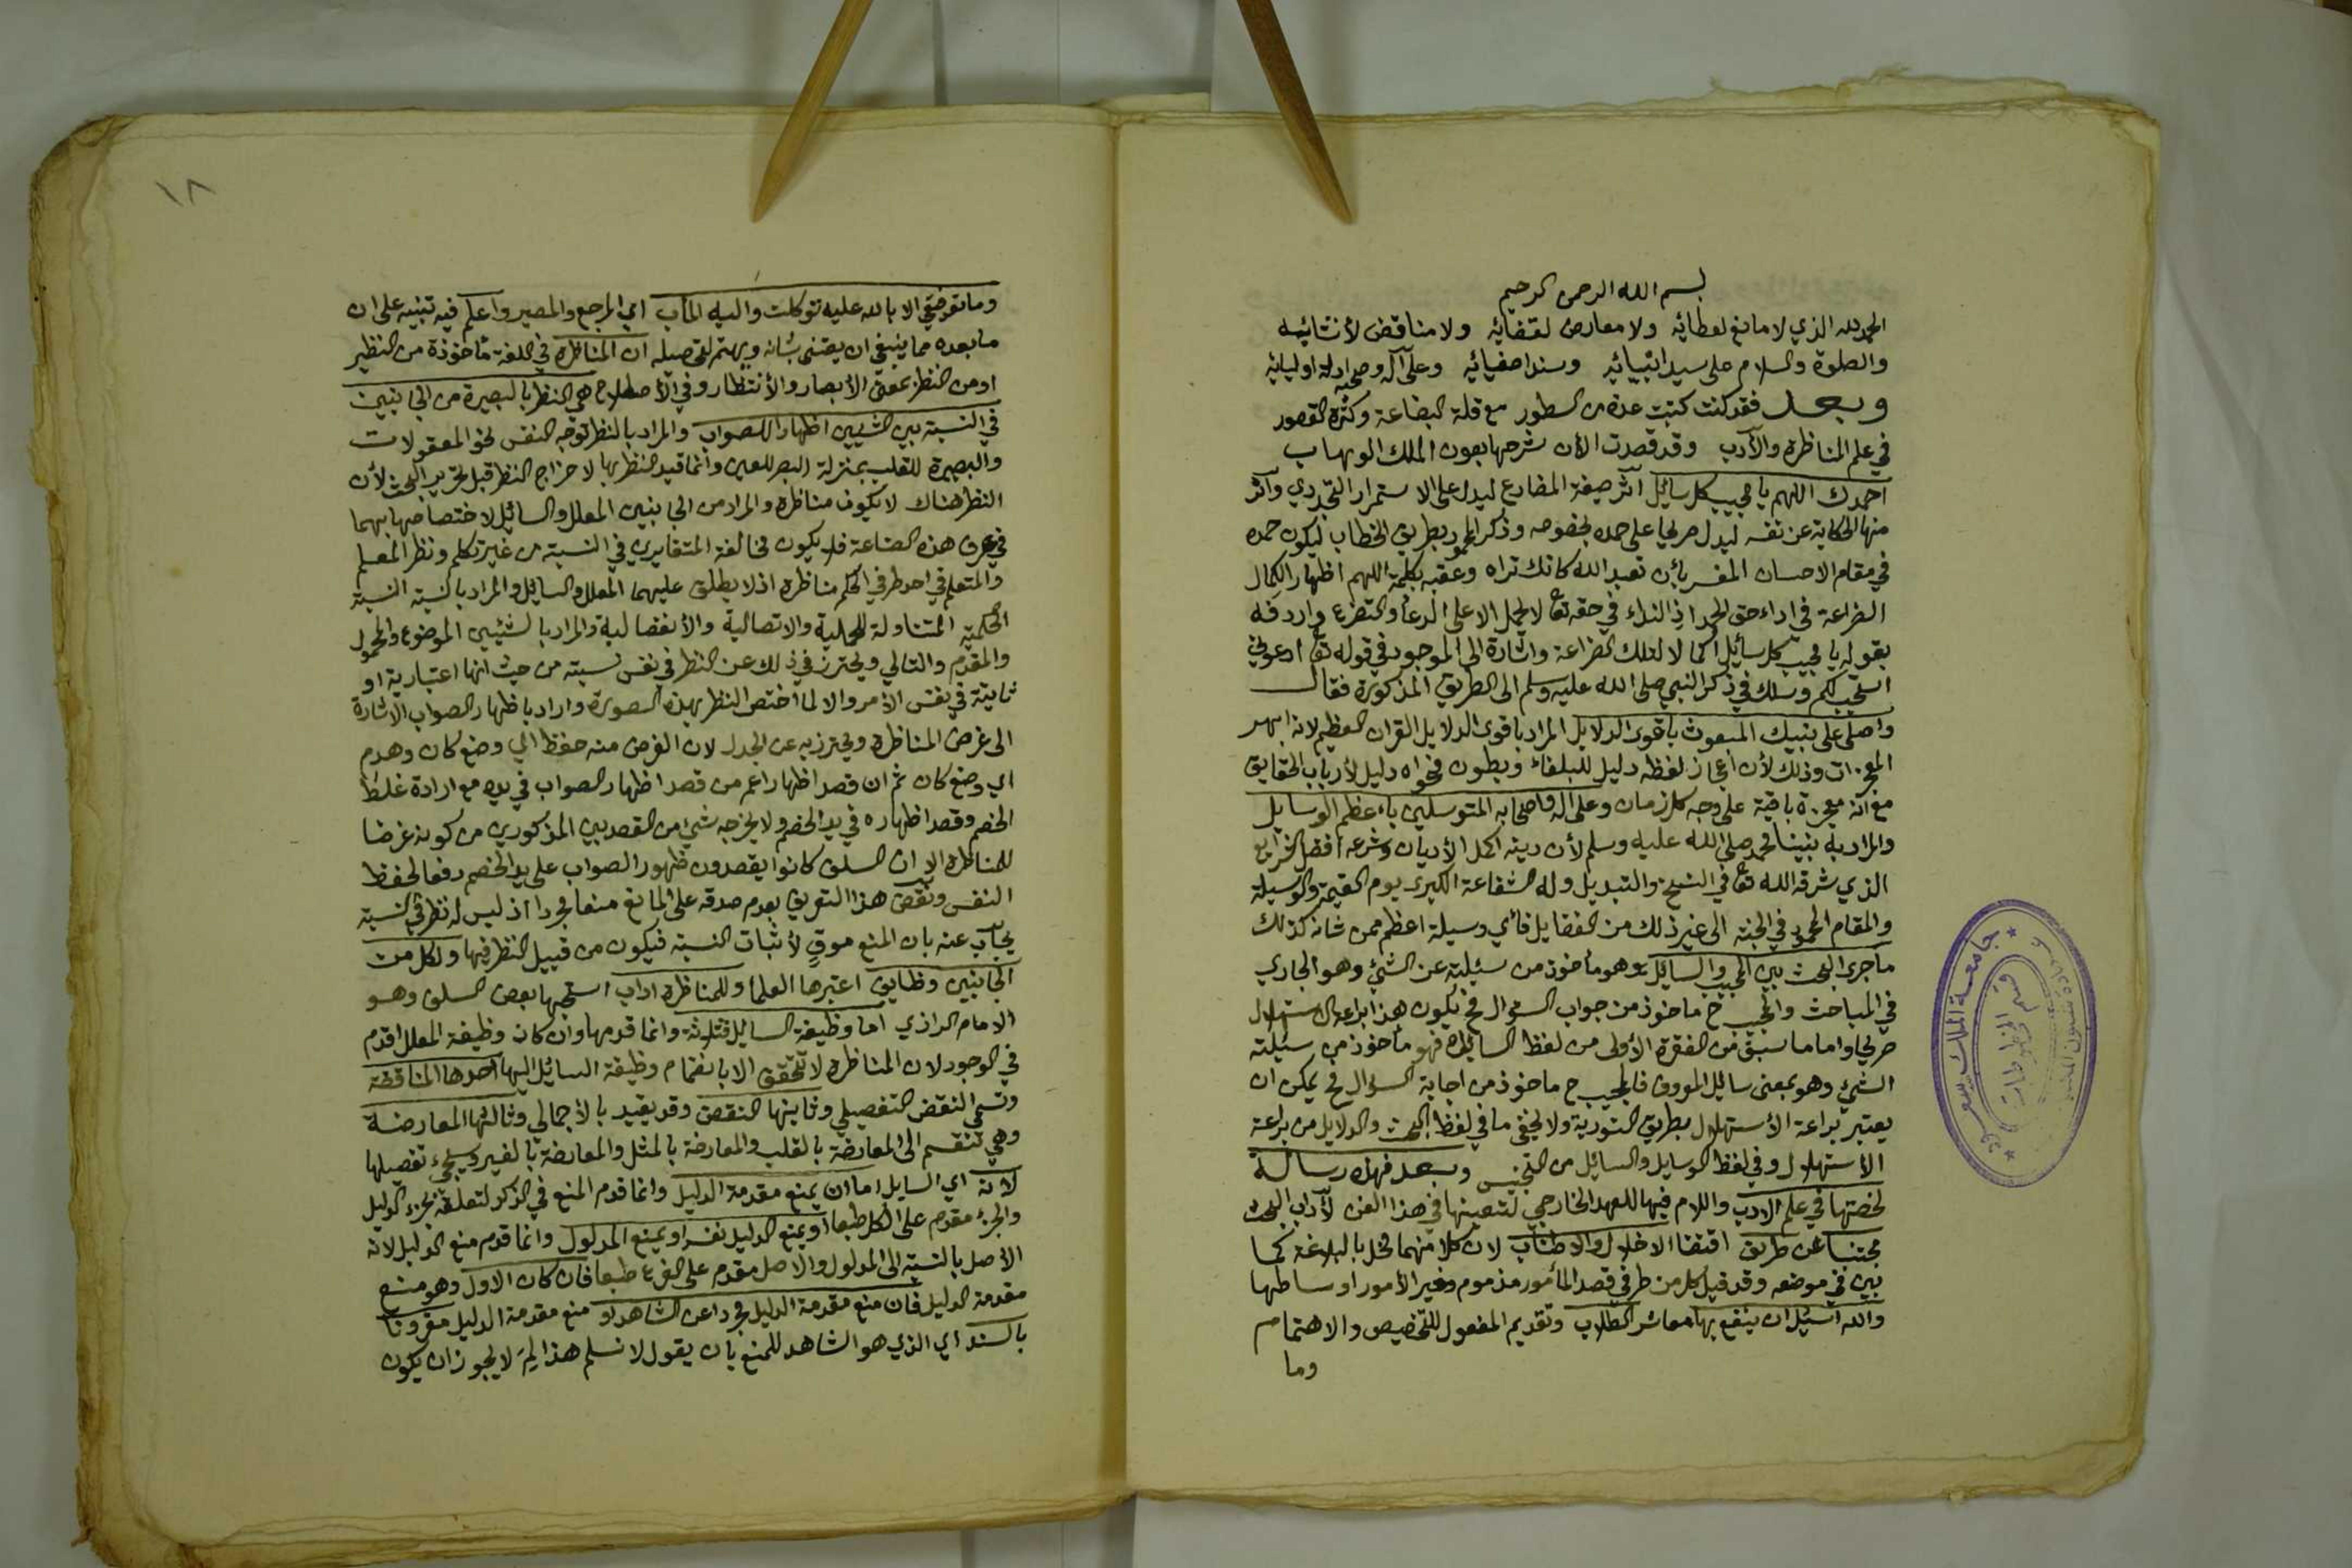 بسم الله الرحمن الرحيم
الحمد لله الذي لا مانع لعطائه ولا معارض لقضائه ولا مناقض لأنشائه
والصلوة والسلام على سيد انبيائه وسند اصفيائه وعلى آله وصحبه ادلة اوليائه
وبعد فقد كنت كتبت عدة من السطور مع قلة البضاعة وكثرة القصور
في علم المناظرة والأدب وقد قصدت الأن شرحها بعون الملك الوهاب
احمدك اللهم يا مجيب كل سائل آثر صيغة المضارع ليدل على الاستمرار التجددي وآثر
منها الحكاية عن نفسه ليدل صريحا على حمده بخصوصه وذكر المحمود بطريق الخطاب ليكون حمده
في مقام الاحسان المفسر بأن تعبد الله كانك تراه وعقبه بكلمة اللهم اظهارا لكمال
الضراعة في اداء حق الحمد اذ النداء في حقه تع لا يحمل الا على الدعاء والتضرع واردفه
بقوله يا مجيب كل سائل اكمالا لتلك الضراعة واشارة الى الموجود في قوله تع ادعوني
استجب لكم وسلك في ذكر النبي صلى الله عليه وسلم الى الطريق المذكورة فقال
واصلي على نبيك المبعوث باقوى الدلايل المراد باقوى الدلايل القران العظيم لانه ابهر
المعجزات وذلك لأن اعجاز لفظه دليل للبلغاء وبطون فحواه دليل لأرباب الحقايق
مع انه معجزة باقية على وجه كل زمان وعلى اله واصحابه المتوسلين باءعظم الوسايل
والمراد به نبينا محمد صلى الله عليه وسلم لأن دينه اكمل الأديان وشرعه افضل الشرايع
الذي شرفه الله تع في النسخ والتبديل وله الشفاعة الكبرى يوم القيمة والوسيلة
والمقام المحمود في الجنة الى غير ذلك من الفضايل فأي وسيلة اعظم ممن شانه كذلك
ما جرى البحث بين المجيب والسايل وهو مأخوذ من سئلته عن الشئ وهو الجاري
في المباحث والمجيب ح ماخوذ من جواب السؤال فح يكون هذا براعة الاستهلال
صريحا واما ما سبق من الفقرة الأولى من لفظ السايل فهو مأخوذ من سئلته
الشئ وهو بمعنى سائل المعروف فالمجيب ح ماخوذ من اجابة السؤال فح يمكن ان
يعتبر براعة الأستهلال بطريق التورية ولا يخفى ما في لفظ البحث والدلايل من براعة
الأستهلال وفي لفظ الوسايل والسائل من التجنيس وبعد فهذه رسالة
لخصتها في علم الاداب واللام فيها للعهد الخارجي لتعينها في هذا الفن لأداب البحث
مجتنبا عن طريق اقتفا الاخلال والاطناب لان كلا منهما مخل بالبلاغة كما
بين في موضعه وقد قيل كل من طرفي قصد المأمور مذموم وخير الأمور اوساطها
والله اسئل ان ينفع بها معاشر الطلاب وتقديم المفعول للتخصيص والاهتمام
وما
١٨
وما توفيقي الا بالله عليه توكلت واليه المأب اي المرجع والمصير واعلم فيه تنبيه على ان
ما بعده مما ينبغي ان يعتنى بشانه ويهتم لتحصيله ان المناظرة في اللغة مأخوذة من النظير
اومن النظر بمعنى الأبصار والأنتظار وفي الأصطلاح هي النظر بالبصيرة من الجانبين
في النسبة بين الشيئين اظهارا للصواب والمراد بالنظر توجه النفس نحو المعقولات
والبصيرة للقلب بمنزلة البصر للعين وانما قيد النظر بها لاخراج النظر قبل تحرير البحث لأن
النظر هناك لا يكون مناظرة والمراد من الجانبين المعلل والسائل لاختصاصها بهما
في عرف هذه الصناعة فلا يكون مخالفة المتغايرين في النسبة من غير تكلم ونظر المعلم
والمتعلم في احد طرفي الحكم مناظرة اذ لا يطلق عليهما المعلل والسايل والمراد بالنسبة النسبة
الحكمية المتناولة للحملية والاتصالية والأنفصالية والمراد بالشيئين الموضوع والمحمول
والمقدم والتالي ويحترز في ذلك عن النظر في نفس نسبته من حيث انها اعتبارية او
ثابتة في نفس الأمر والا لما اختص النظر بهذه الصورة واراد باظهار الصواب الاشارة
الى غرض المناظرة ويحترز به عن الجدل لان الغرض منه حفظ اي وضع كان وهدم
اي وضع كان ثم ان قصد اظهار اعم من قصد اظهار الصواب في يده مع ارادة غلط
الخصم وقصد اظهاره في يد الخصم ولا يخرجه شئ من القصدين المذكورين من كونه غرضا
للمناظرة الا ان السلف كانوا يقصدون ظهور الصواب على يد الخصم دفعا لحفظ
النفس ونقض هذا التعريف بعدم صدقه على المانع منعا مجردا اذ ليس له نظر في النسبة
يجاب عنه بان المنع موق لأثبات النسبة فيكون من قبيل النظر فيها ولكل من
الجانبين وظايف اعتبرها العلما وللمناظرة اداب استحبها بعض السلف وهو
الامام الرازي اما وظيفة السايل فثلاثة وانما قدمها وان كان وظيفة المعلل اقدم
في الوجود لان المناظرة لا تتحقق الا بانضمام وظيفة السائل اليها احدها المناقضة
وتسمى النقض التفصيلي وثانيها النقض وقد يقيد بالأجمالي وثالثها المعارضة
وهي تنقسم الى المعارضة بالقلب والمعارضة بالمثل والمعارضة بالغير وسيجيء تفصيلها
لانه اي السايل اما ان يمنع مقدمة الدليل وانما قدم المنع في الذكر لتعلقه بجزء الدليل
والجزء مقدم على الكل طبعا او يمنع الدليل نفسه او يمنع المدلول وانما قدم منع الدليل لانه
الأصل بالنسبة الى المدلول والاصل مقدم على الفرع طبعا فان كان الاول وهو منع
مقدمة الدليل فان منع مقدمة الدليل مجردا عن الشاهد او منع مقدمة الدليل مقرونا
بالسند اي الذي هو الشاهد للمنع بان يقول لا نسلم هذا لم لا يجوز ان يكون
جامعة الملك سعود
قسم المخطوطات